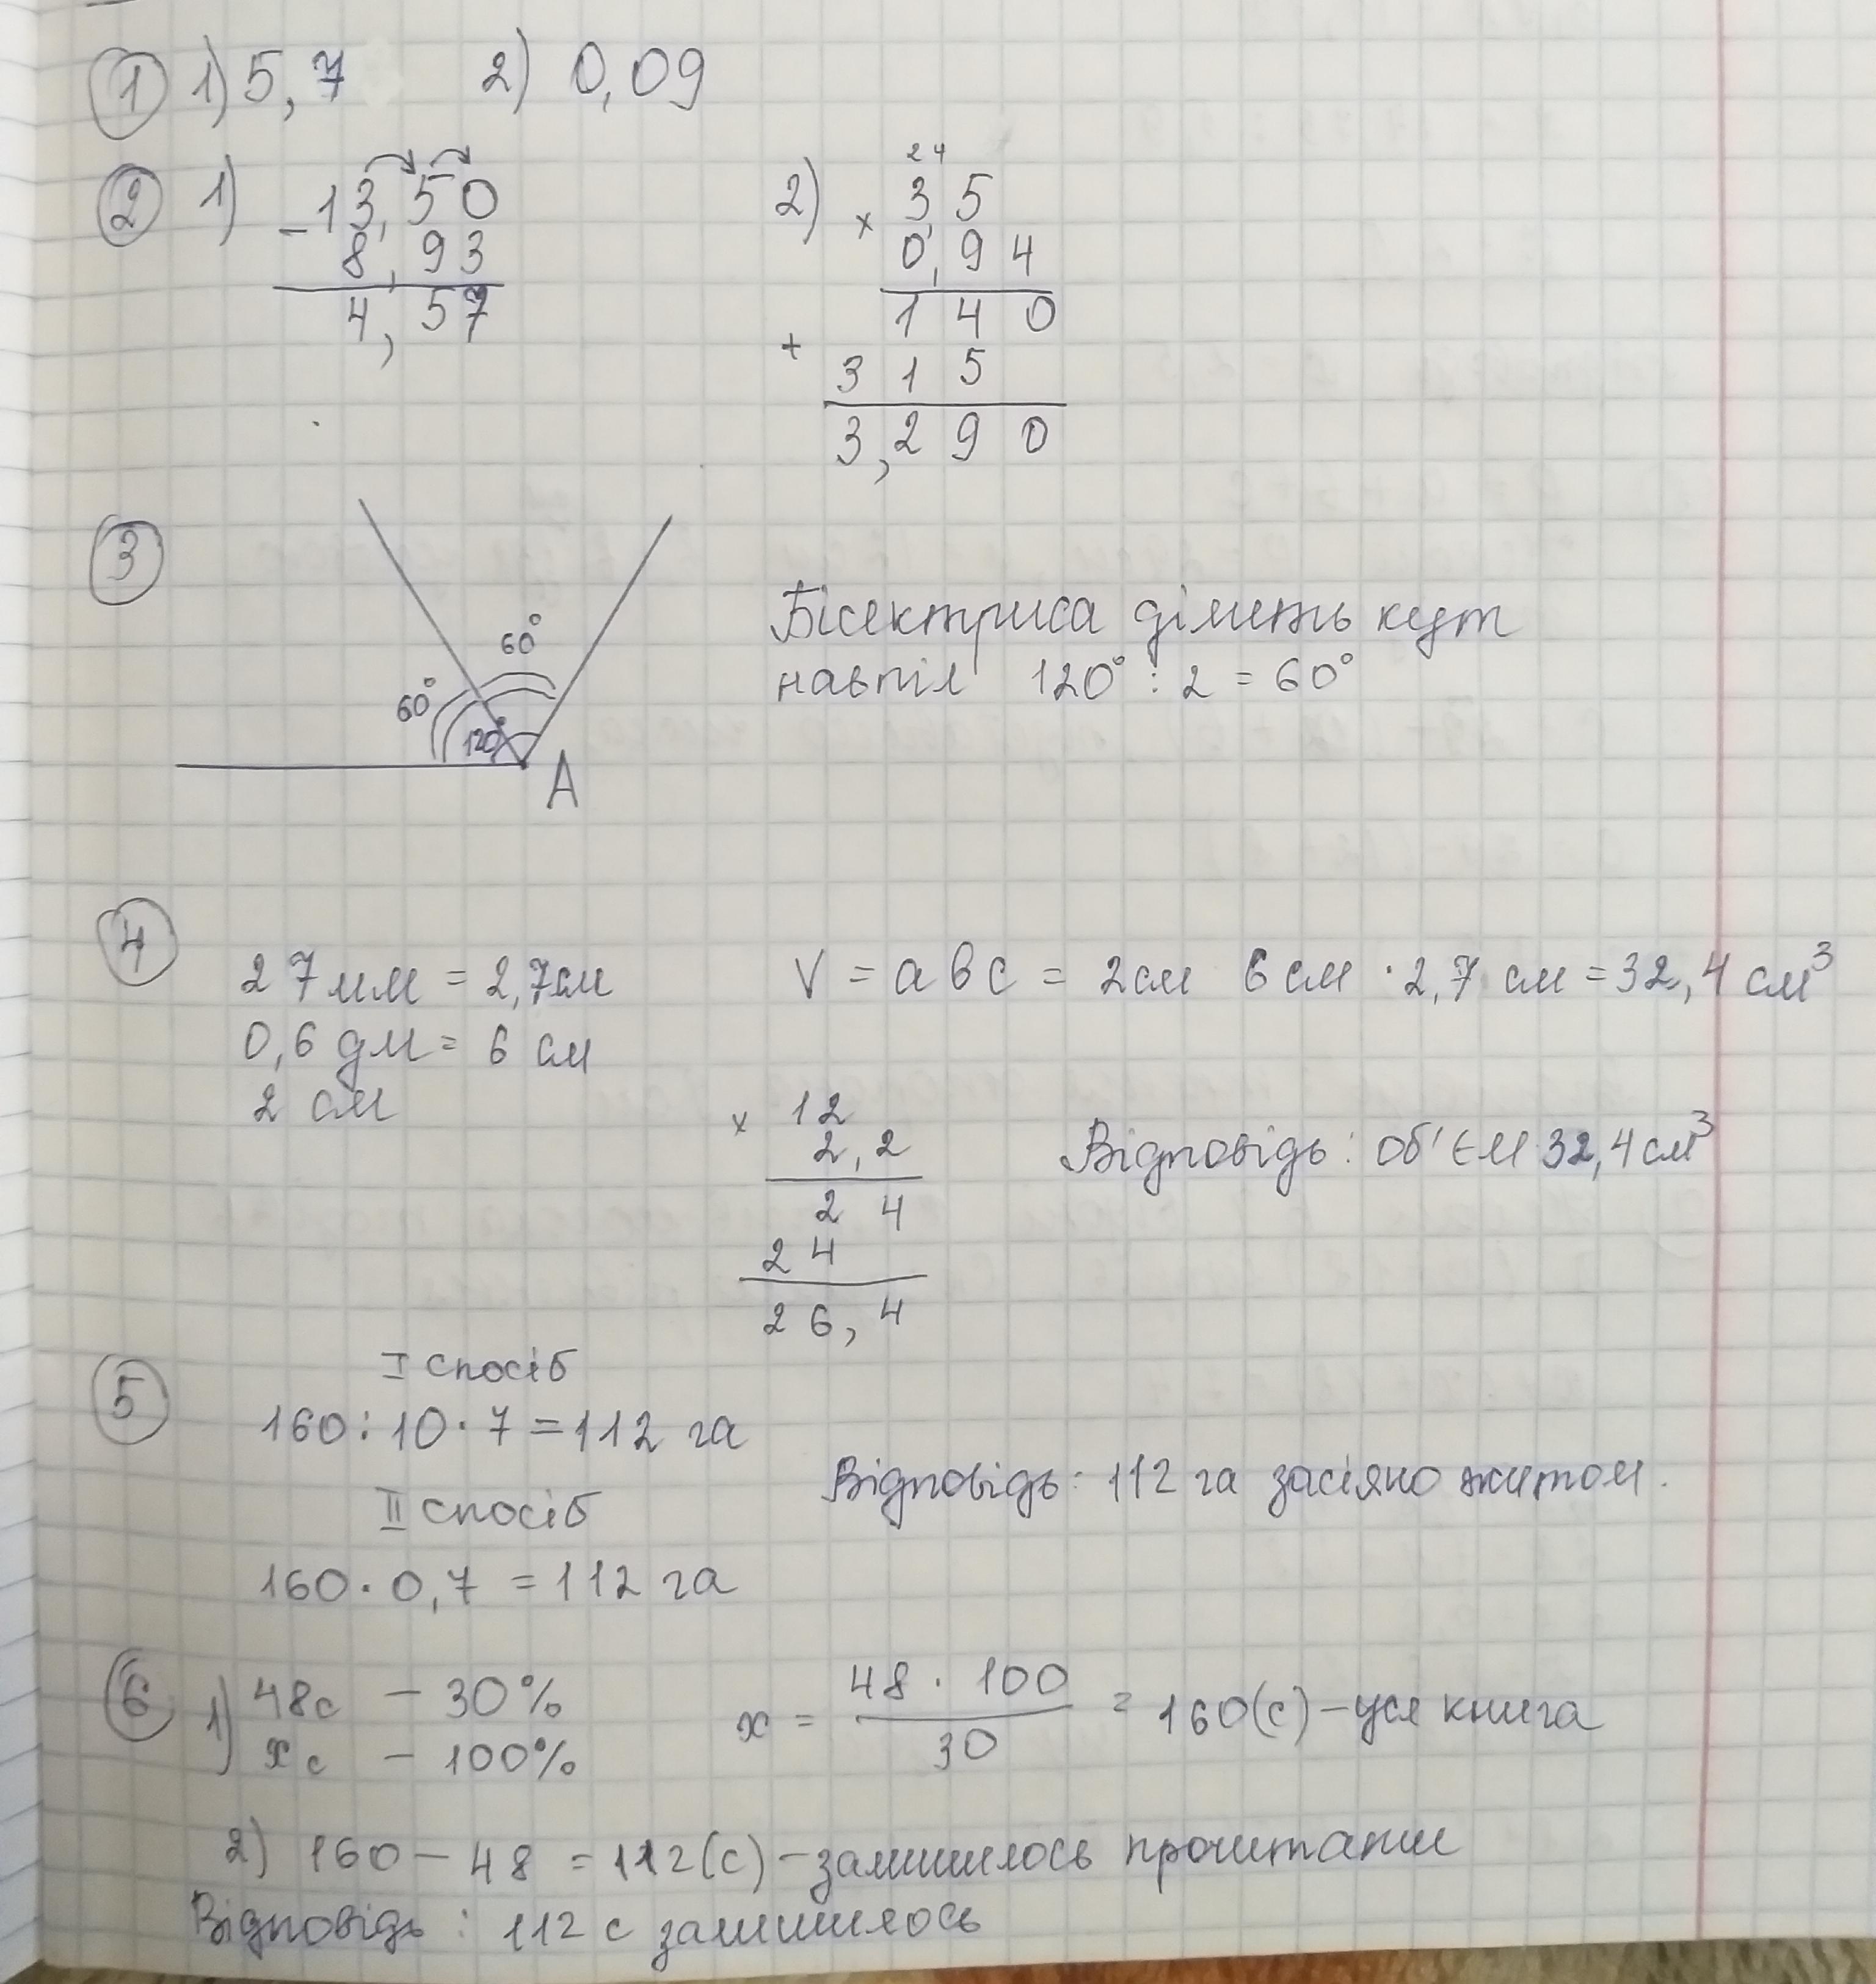 1 1) 5,7 2) 0,09
2 1) - 13,50
8,93
4,57
2) 2 4
× 3 5
0,9 4
1 4 0
+ 3 1 5
3,2 9 0
3
60°
60°
120°
A
Бісектриса ділить кут
навпіл 120° : 2 = 60°
4
27 мм = 2,7 см
0,6 дм = 6 см
2 см
V = a b c = 2 см 6 см · 2,7 см = 32,4 см³
× 12
2,2
2 4
2 4
2 6,4
Відповідь: об'єм 32,4 см³
5
I спосіб
160 : 10 · 7 = 112 га
II спосіб
160 · 0,7 = 112 га
Відповідь: 112 га засіяно житом.
6 1) 48 с – 30%
х с – 100%
х = 48 · 100 / 30 = 160 (с) – уся книга
2) 160 – 48 = 112 (с) – залишилось прочитати
Відповідь: 112 с залишилось